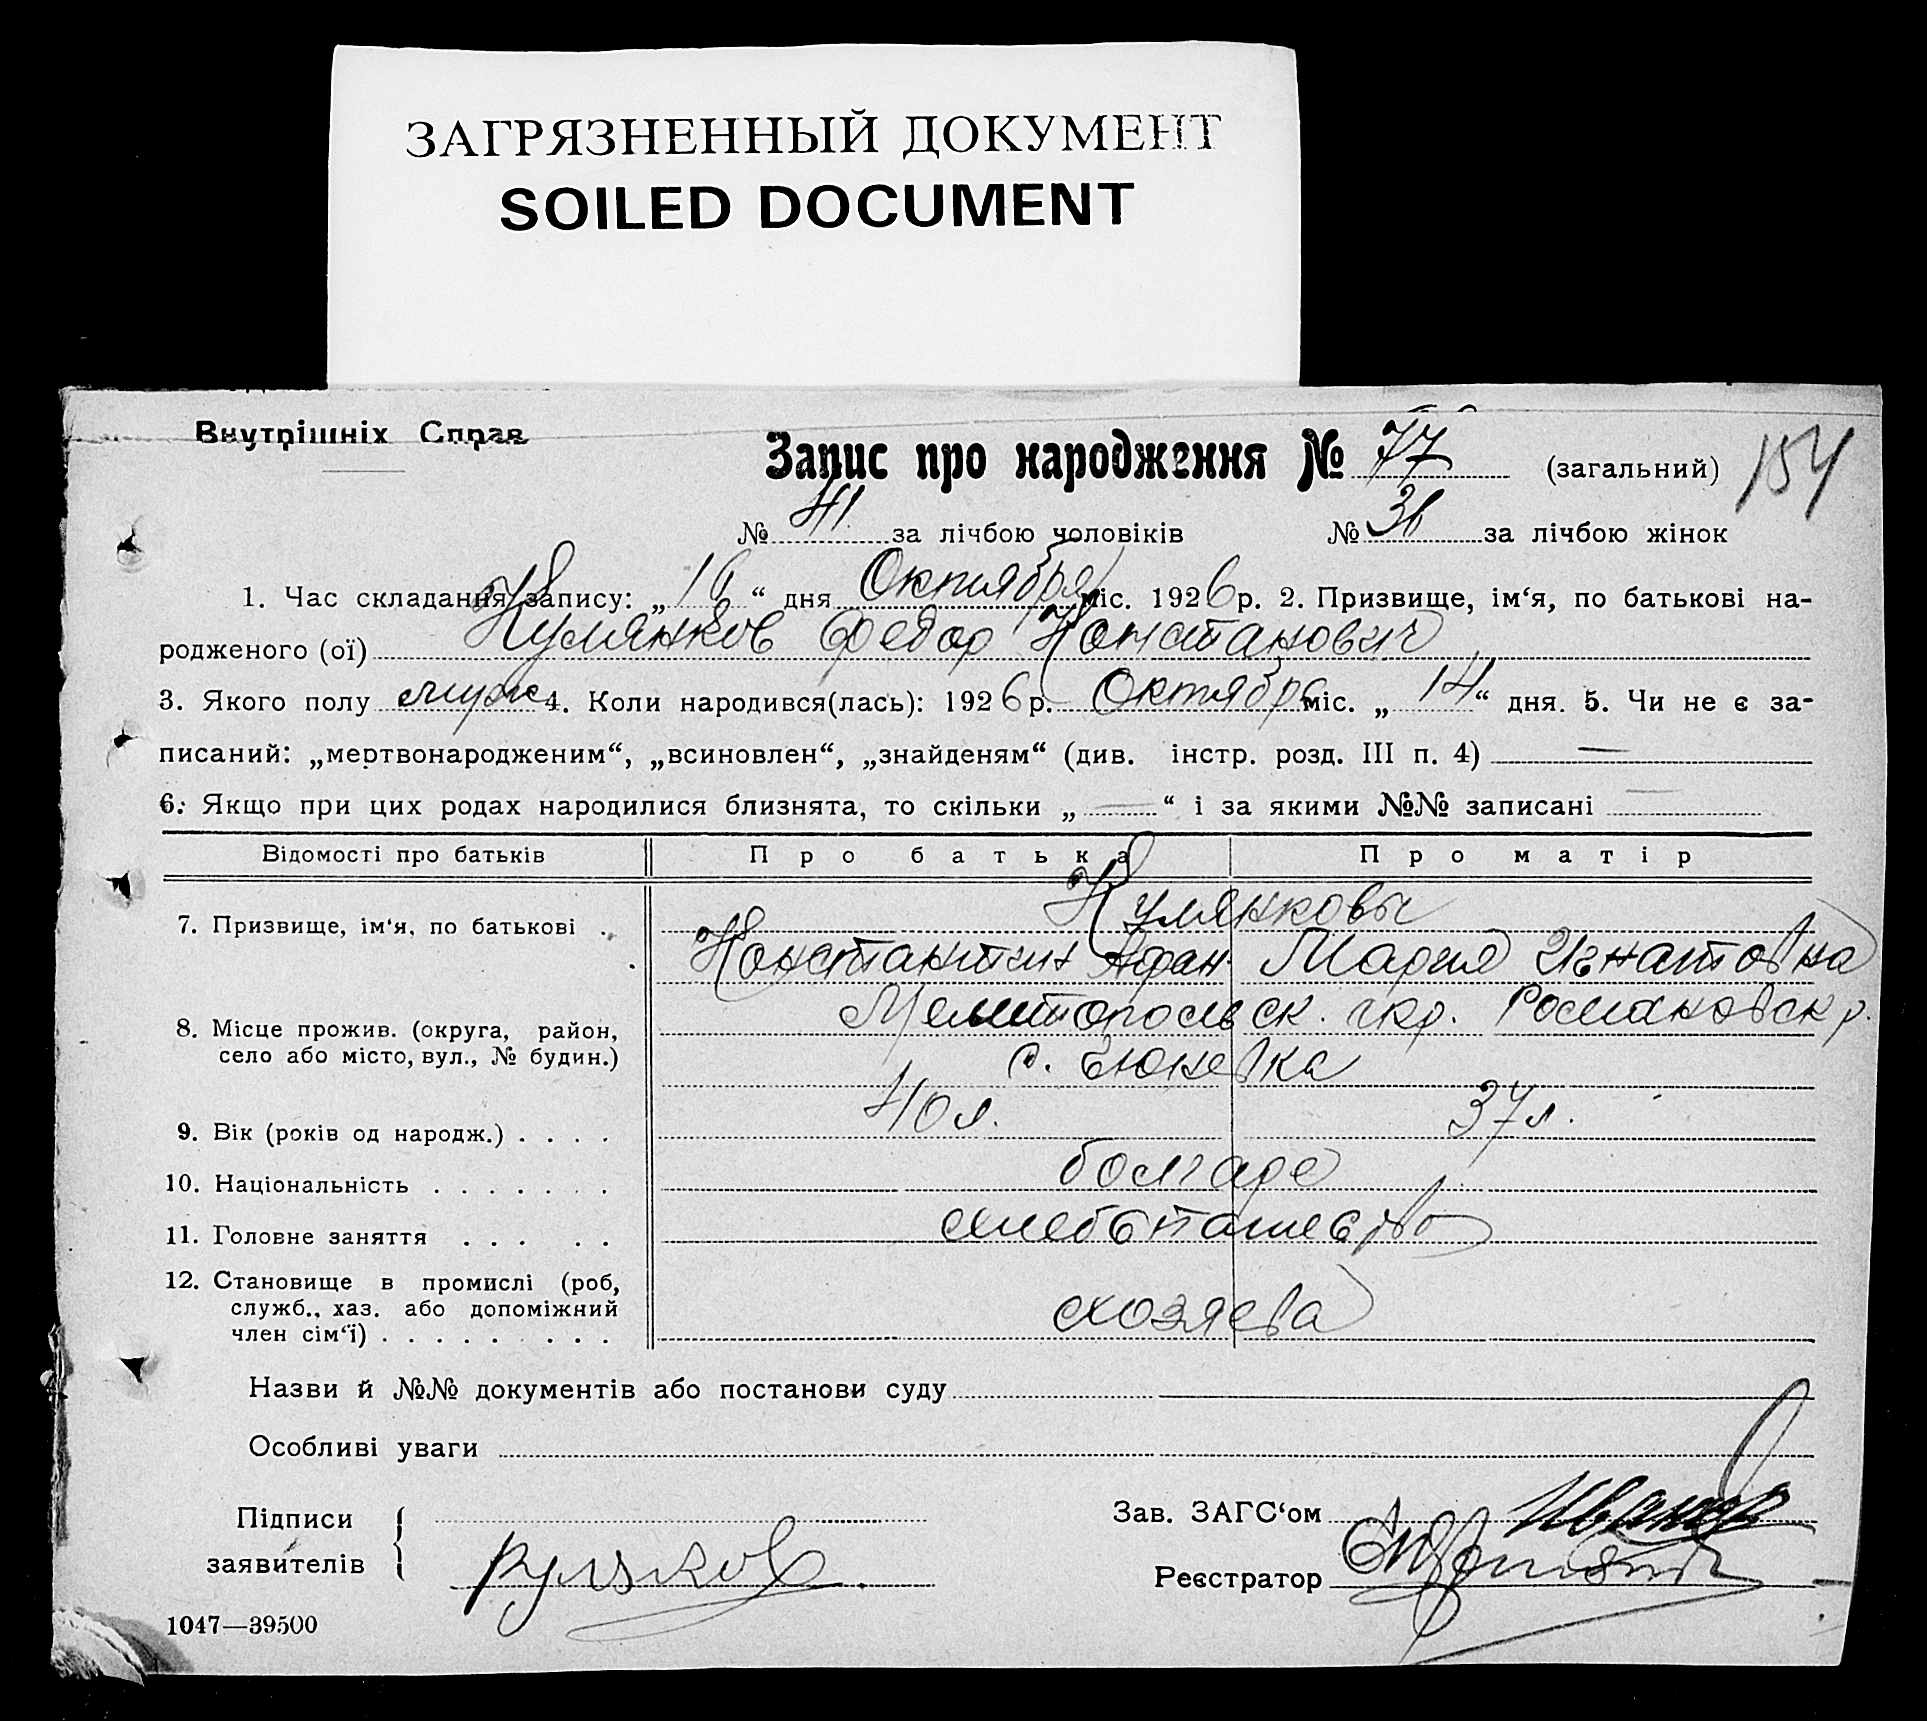 ЗАГРЯЗНЕННЫЙ ДОКУМЕНТ
SOILED DOCUMENT
Внутрішніх Справ
Запис про народження № 77 (загальний) 154
№ 41 за лічбою чоловіків № 36 за лічбою жінок
1. Час складання запису: „16“ дня Октября міс. 1926 р. 2. Призвище, ім‘я, по батькові на-
родженого (ої) Кулянков Федор
3. Якого полу муж 4. Коли народився(лась): 1926 р. Октября міс. „14“ дня. 5. Чи не є за-
писаний: „мертвонародженим“, „всиновлен“, „знайденям“ (див. інстр. розд. III п. 4) —
6. Якщо при цих родах народилися близнята, то скільки „—“ і за якими №№ записані —
Відомості про батьків Про батька Про матір
7. Призвище, ім‘я, по батькові . Кулянковы
Константин Афан. Мария Игнатовна
8. Місце прожив. (округа, район, Мелитопольск. окр. Романовск р.
село або місто, вул., № будин.) с. Гюневка
9. Вік (років од народж.) . . . . 40 л. 37 л.
10. Національність . . . . . . . болгаре
11. Головне заняття . . . . .
12. Становище в промислі (роб, хозяева
служб., хаз. або допоміжний
член сім‘ї) . . . . . . . . .
Назви й №№ документів або постанови суду
Особливі уваги
Підписи
заявителів
Зав. ЗАГС‘ом Иванов
Реєстратор
1047—39500